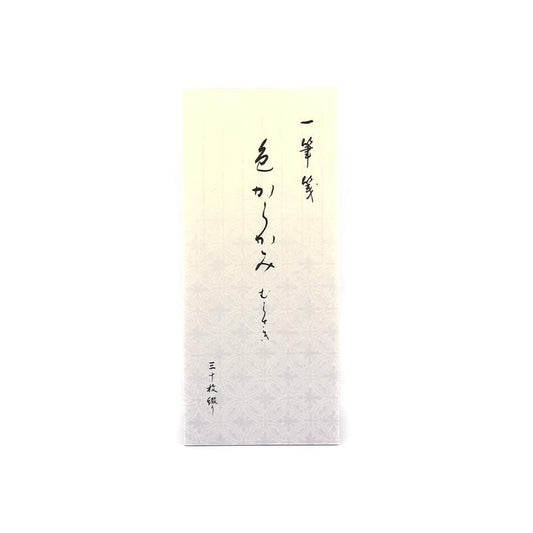 一筆箋
色からかみ むらさき
三十枚綴り